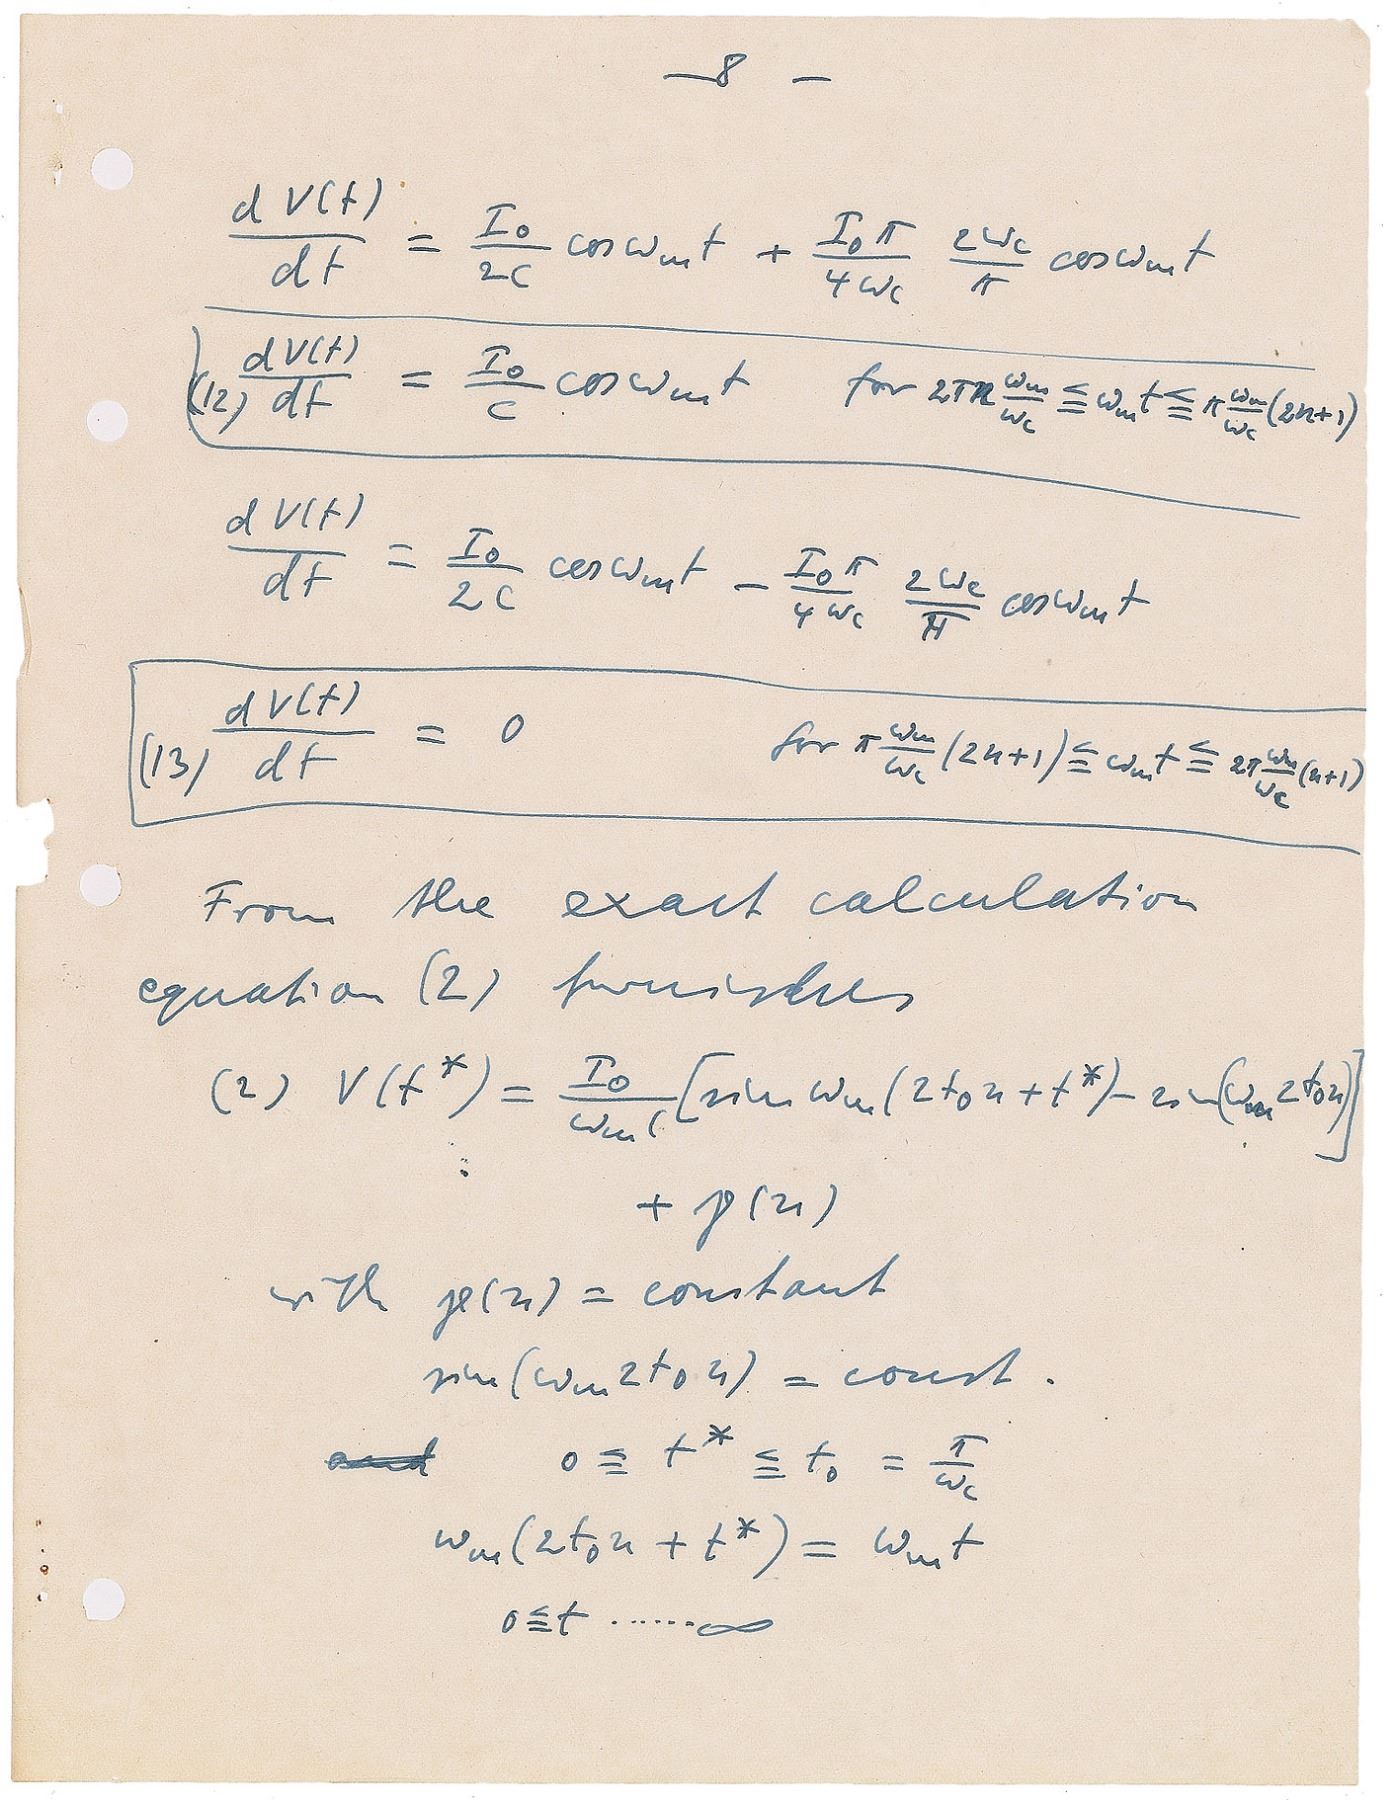 — 8 —
dV(t)/dt = I₀/2C cos ωₘt + I₀π/4ωc 2ωc/π cos ωₘt
(12) dV(t)/dt = I₀/C cos ωₘt for 2πn ωₘ/ωc ≦ ωₘt ≦ π ωₘ/ωc (2n+1)
dV(t)/dt = I₀/2C cos ωₘt − I₀π/4ωc 2ωc/π cos ωₘt
(13) dV(t)/dt = 0 for π ωₘ/ωc (2n+1) ≦ ωₘt ≦ 2π ωₘ/ωc (n+1)
From the exact calculation
equation (2) furnishes
(2) V(t*) = I₀/ωₘC [sin ωₘ(2t₀n + t*) − sin(ωₘ2t₀n)]
+ p(n)
with p(n) = constant
sin(ωₘ2t₀n) = const.
0 ≦ t* ≦ t₀ = π/ωc
ωₘ(2t₀n + t*) = ωₘt
0 ≦ t ....... ∞